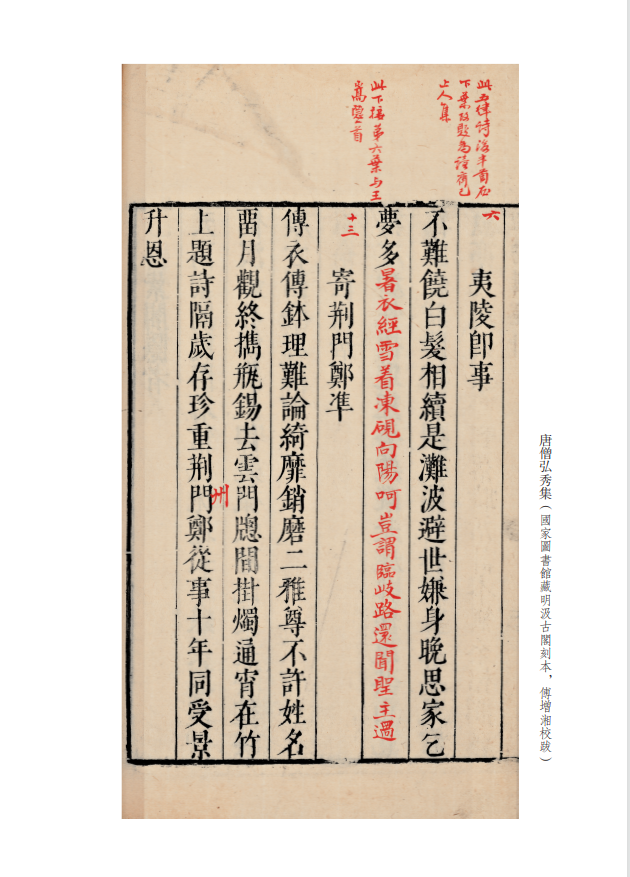 此五律詩後半首在
下葉改題為讀齊己
上人集
此下接第六葉与王
六
夷陵卽事
不難饒白髮相續是灘波避世嫌身晚思家乞
夢多暑衣經雪着凍硯向陽呵豈謂臨岐路還聞聖主過
十三
寄荆門鄭準
傳衣傳鉢理難論綺靡銷磨二雅尊不許姓名
畱月觀終擕瓶錫去雲門牕間掛燭通宵在竹
州
上題詩隔歲存珍重荆門鄭從事十年同受景
升恩
唐僧弘秀集（國家圖書館藏明汲古閣刻本，傅增湘校跋）